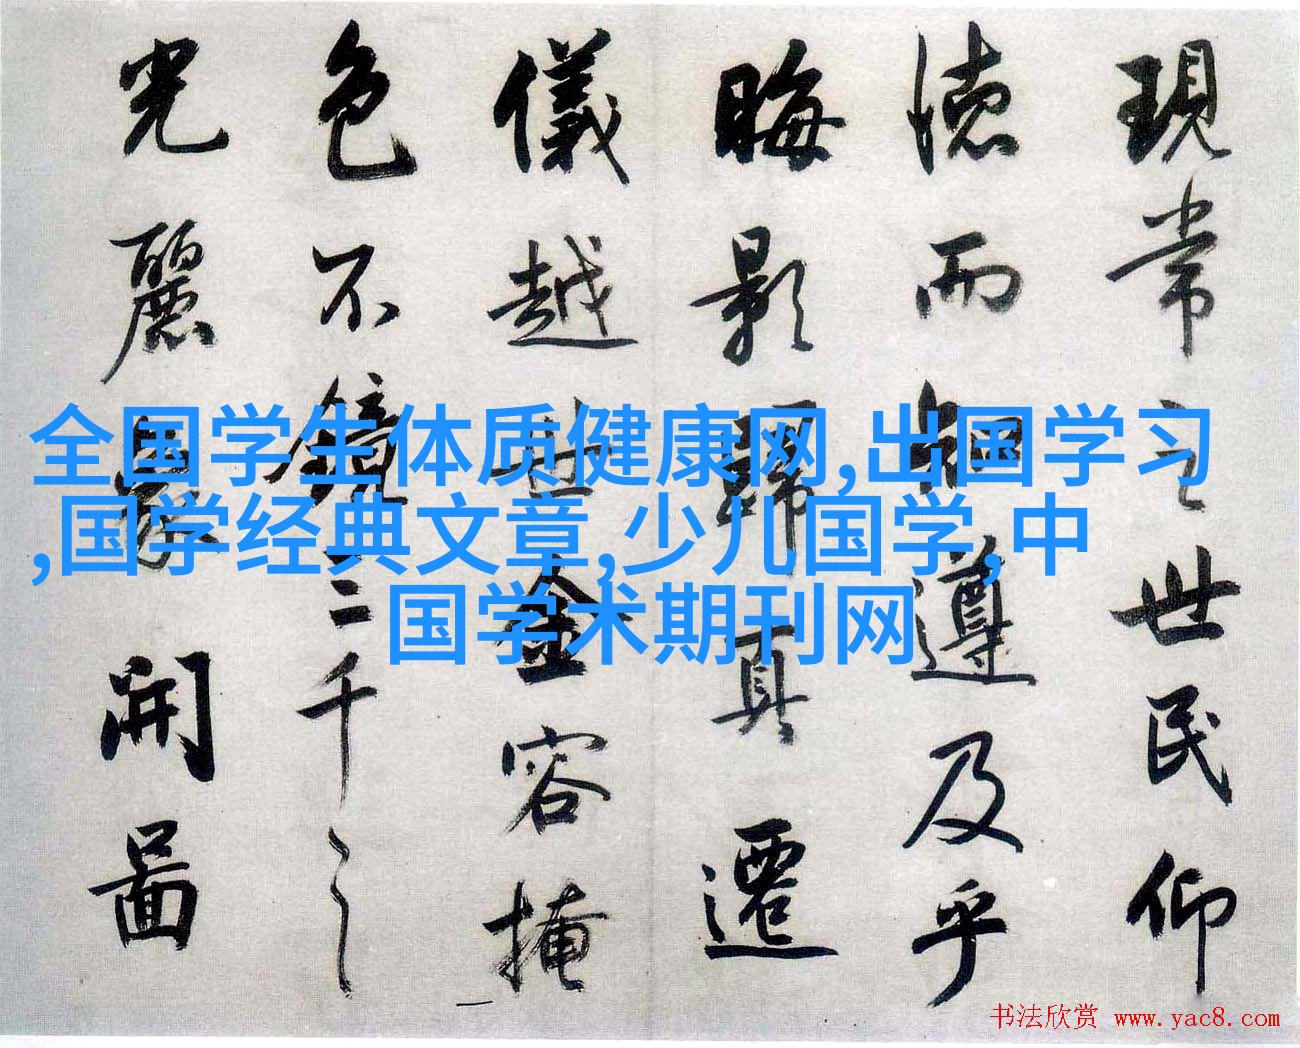 現常之世民仰
德而知遵及乎
晦影歸真遷
儀越世金容掩
色不鏡三千之
光麗象開圖
全国学生体质健康网,出国学习
,国学经典文章,少儿国学,中
国学术期刊网
书法欣赏 www.yac8.com